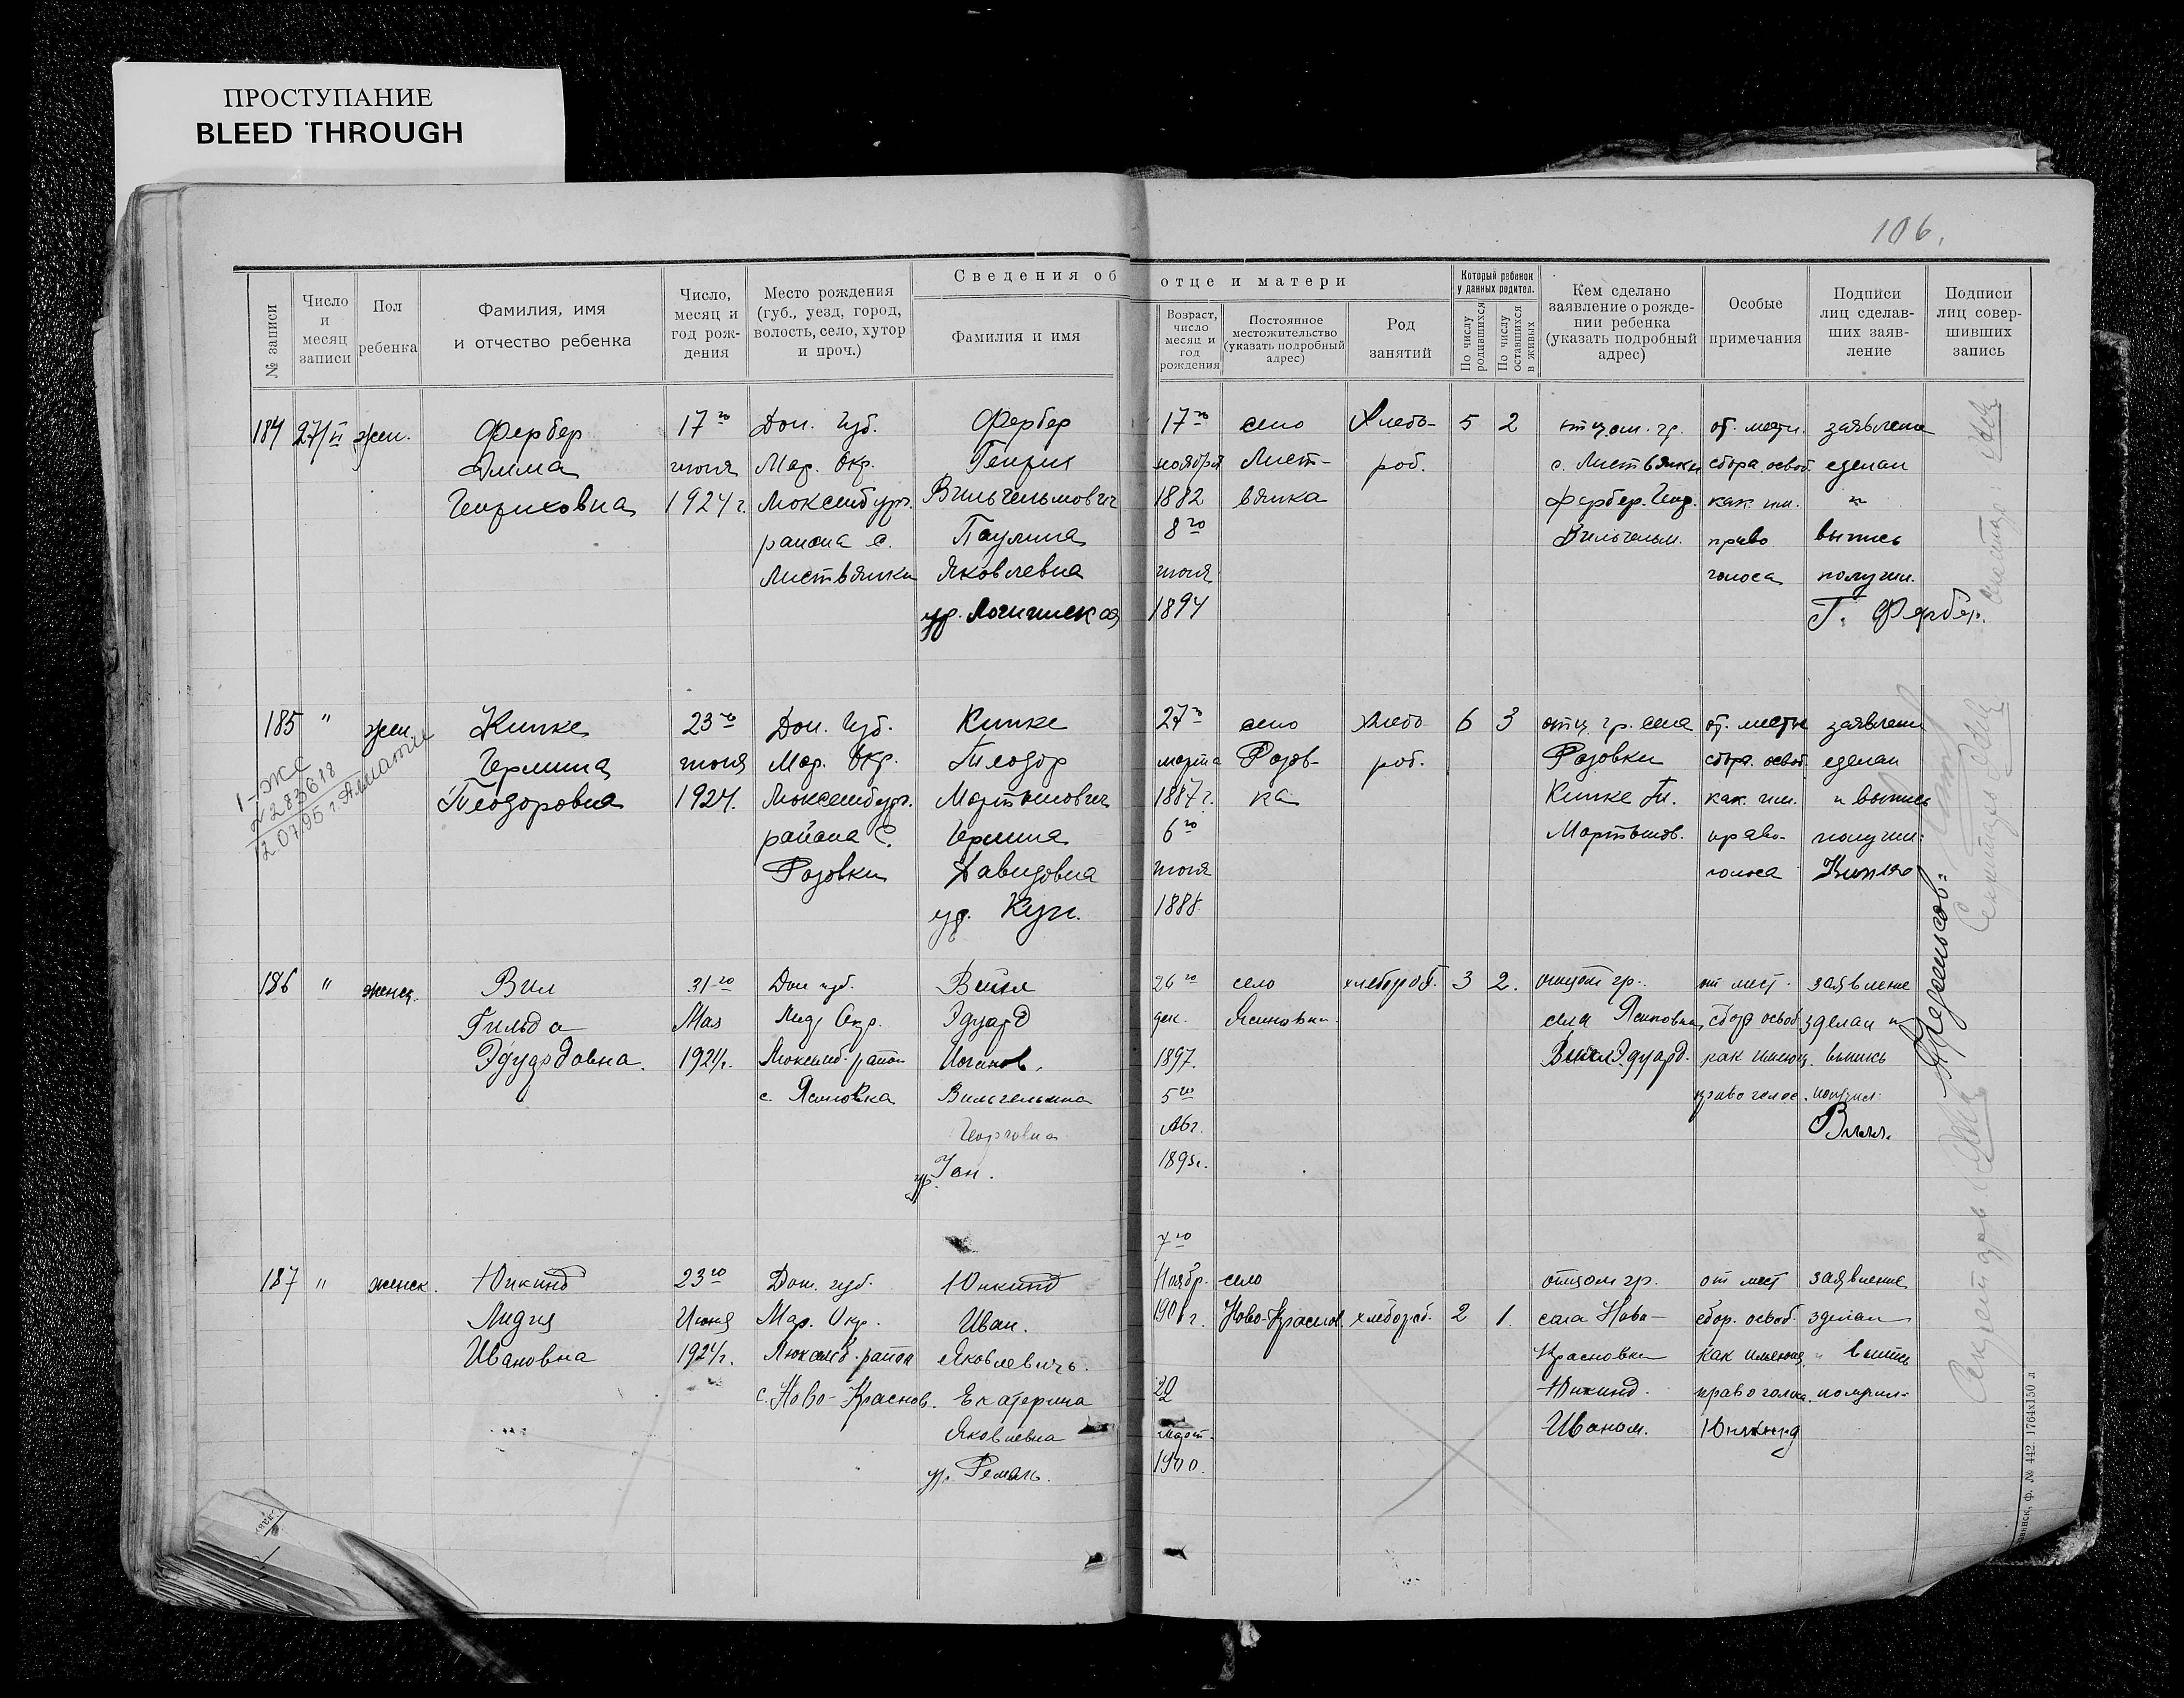 ПРОСТУПАНИЕ
BLEED THROUGH
106.
Сведения об отце и матери
№ записи
Число и месяц записи
Пол ребенка
Фамилия, имя и отчество ребенка
Число, месяц и год рождения
Место рождения (губ., уезд, город, волость, село, хутор и проч.)
Фамилия и имя
Возраст, число месяц и год рождения
Постоянное местожительство (указать подробный адрес)
Род занятий
Который ребенок у данных родител.
По числу родившихся
По числу оставшихся в живых
Кем сделано заявление о рождении ребенка (указать подробный адрес)
Особые примечания
Подписи лиц сделавших заявление
Подписи лиц совершивших запись
184 27/VI жен. Фербер 17го Дон. Губ. Фербер 17го село Хлебо- 5 2 отцом. гр. от. местн. заявление
июня Мар. Окр. Генрих ноября Лист- роб. с. Листвянки сбора освоб. сделал
Генриховна 1924 г. Люксембург. Вильгельмович 1882 вянка Фербер. Генр. как им. и
района с. Паулина 8го Вильгельм. право выпись
Листвянки Яковлевна июня голоса получил.
1894 Г. Фербер.
185 " жен. Кипке 23го Дон. Губ. Кипке 27го село хлебо 6 3 отц. гр. села от. местн заявлени
Гермина июня Мар. Окр. Теодор марта Розов- роб. Розовки сбора. освоб. сделал
Теодоровна 1924. Люксембург. Мартынович 1887 г. ка Кипке Т. как. им. и выпись
района с. 6го Мартынов. право- получил.
Розовки Давидовна июня голоса
ур. Кун. 1888.
186 " женск. Вил 31го Дон губ. 26го село хлебороб. 3 2. отцом гр. от мест. заявление
Гильда Мая Окр. Эдуард дек. Ясиновка. села Ясиновка, сбора освоб. зделал и
Эдуардовна. 1924г. Люксемб. район Иоганов. 1897. Эдуард. как имеющ. выпись
с. Ясиновка Вильгельмина 5го право голос. получил.
Георговна Авг.
ур. Ян. 1895г.
7го
187 " женск. Юнкинд 23го Дон. губ. Юнкинд Ноябр. село отцом гр. от мест заявление
Лидия Июня Мар. Окр. Иван. 1901г. Ново-Краснов. хлебороб. 2 1. села Ново- сбор. освоб. зделал
Ивановна 1924г. Люксемб. район Яковлевичь. Красновки как имеющ. и выпись
с. Ново-Краснов. Екатерина 22 Юнкинд. право голоса. получил.
Яковлевна Март. Иваном. Юнкинд
1900.
ф. № 442. 1764х150 л